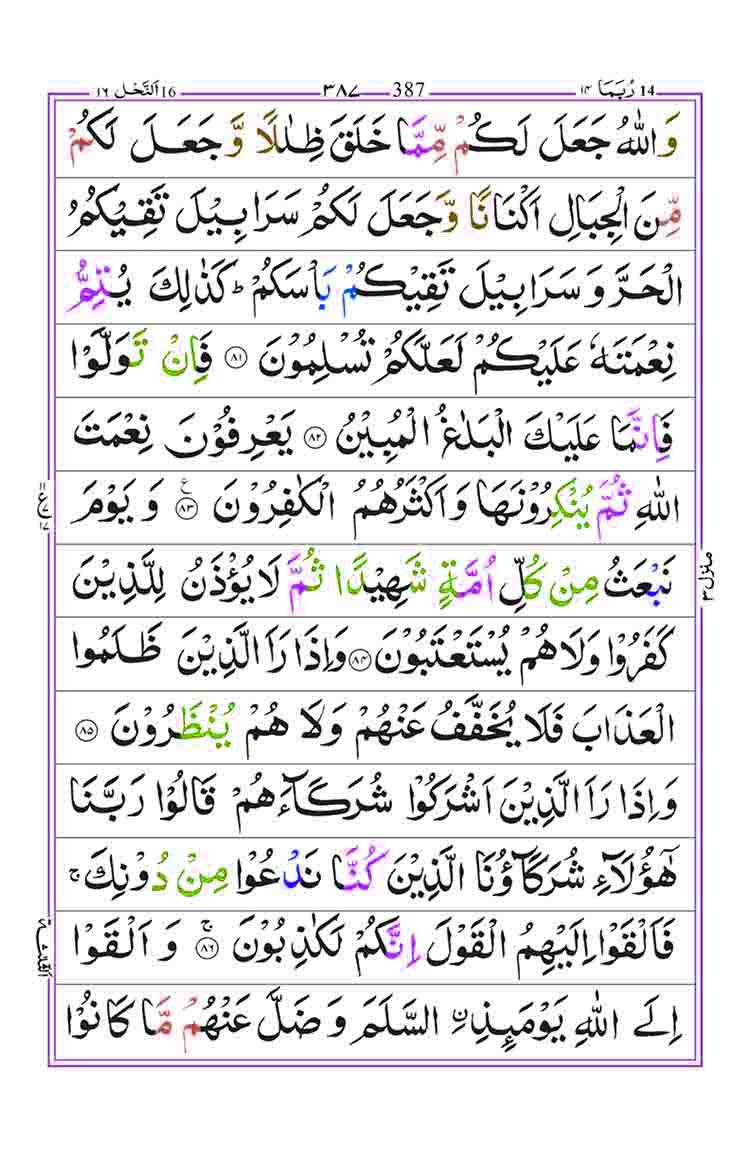 رُبَمَا 14 ١٤ 387 ٣٨٧ 16 اَلنَّحْل ١٦
وَاللّٰهُ جَعَلَ لَكُمْ مِّمَّا خَلَقَ ظِلٰلًا وَّ جَعَلَ لَكُمْ
مِّنَ الْجِبَالِ اَكْنَانًا وَّجَعَلَ لَكُمْ سَرَابِيْلَ تَقِيْكُمُ
الْحَرَّ وَ سَرَابِيْلَ تَقِيْكُمْ بَاْسَكُمْ ؕ كَذٰلِكَ يُتِمُّ
نِعْمَتَهٗ عَلَيْكُمْ لَعَلَّكُمْ تُسْلِمُوْنَ ۝۸۱ فَاِنْ تَوَلَّوْا
فَاِنَّمَا عَلَيْكَ الْبَلٰغُ الْمُبِيْنُ ۝۸۲ يَعْرِفُوْنَ نِعْمَتَ
اللّٰهِ ثُمَّ يُنْكِرُوْنَهَا وَاَكْثَرُهُمُ الْكٰفِرُوْنَ ۝۸۳ وَ يَوْمَ
نَبْعَثُ مِنْ كُلِّ اُمَّةٍ شَهِيْدًا ثُمَّ لَا يُؤْذَنُ لِلَّذِيْنَ
كَفَرُوْا وَلَا هُمْ يُسْتَعْتَبُوْنَ ۝۸۴ وَاِذَا رَاَ الَّذِيْنَ ظَلَمُوا
الْعَذَابَ فَلَا يُخَفَّفُ عَنْهُمْ وَلَا هُمْ يُنْظَرُوْنَ ۝۸۵
وَاِذَا رَاَ الَّذِيْنَ اَشْرَكُوْا شُرَكَآءَهُمْ قَالُوْا رَبَّنَا
هٰٓؤُلَآءِ شُرَكَآؤُنَا الَّذِيْنَ كُنَّا نَدْعُوْا مِنْ دُوْنِكَ ۚ
فَاَلْقَوْا اِلَيْهِمُ الْقَوْلَ اِنَّكُمْ لَكٰذِبُوْنَ ۝۸۶ۚ وَ اَلْقَوْا
اِلَى اللّٰهِ يَوْمَىِٕذِ ۨ السَّلَمَ وَ ضَلَّ عَنْهُمْ مَّا كَانُوْا
منزل ۳